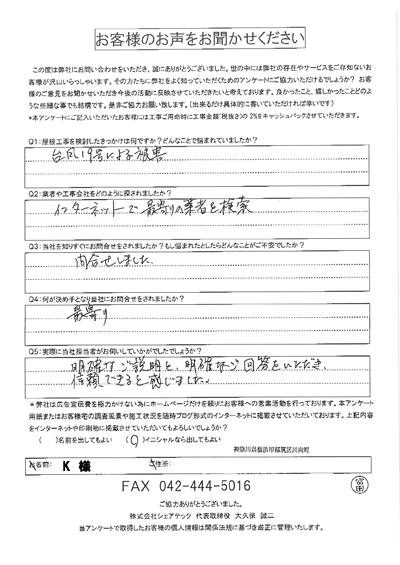 お客様のお声をお聞かせください
この度は弊社にお問い合わせをいただき、誠にありがとうございました。世の中には弊社の存在やサービスをご存知ないお
客様が沢山いらっしゃいます。その方たちに弊社をよく知っていただくためのアンケートにご協力いただけるでしょうか？ お客
様のご意見をお聞かせいただき今後の活動に反映させていただきたいと考えております。良かったこと、嬉しかったことどのよ
うな些細な事でも結構です。是非ご協力お願い致します。（出来るだけ具体的に書いていただければ幸いです）
*本アンケートにご記入いただいたお客様には工事ご用命時に工事金額（税抜き）の2%をキャッシュバックさせていただきます。
Q1：屋根工事を検討したきっかけは何ですか？どんなことで悩まれていましたか？
台風19号による被害
Q2：業者や工事会社をどのように探されましたか？
インターネットで最寄りの業者を検索
Q3：当社を知りすぐにお問合せをされましたか？もし悩まれたとしたらどんなことがご不安でしたか？
問合せしました
Q4：何が決め手となり当社にお問合せをされましたか？
最寄り
Q5：実際に当社担当者がお伺いしていかがでしたでしょうか？
明確なご説明と、明確なご回答をいただき、
信頼できると感じました。
*弊社は広告宣伝費を極力かけない為にホームページだけを頼りにお客様への営業活動を行っております。本アンケート
用紙またはお客様宅の調査風景や施工状況を随時ブログ形式のインターネットに掲載させていただいております。上記内容
をインターネットや印刷物に掲載させていただいてもよろしいでしょうか？
（　）名前を出してもよい （○）イニシャルなら出してもよい
神奈川県横浜市都筑区川向町
お名前： K 様 ご住所：
FAX 042-444-5016
ご協力ありがとうございました。
株式会社シェアテック 代表取締役 大久保 誠二
当アンケートで取得したお客様の個人情報は関係法規に基づき厳正に管理いたします。